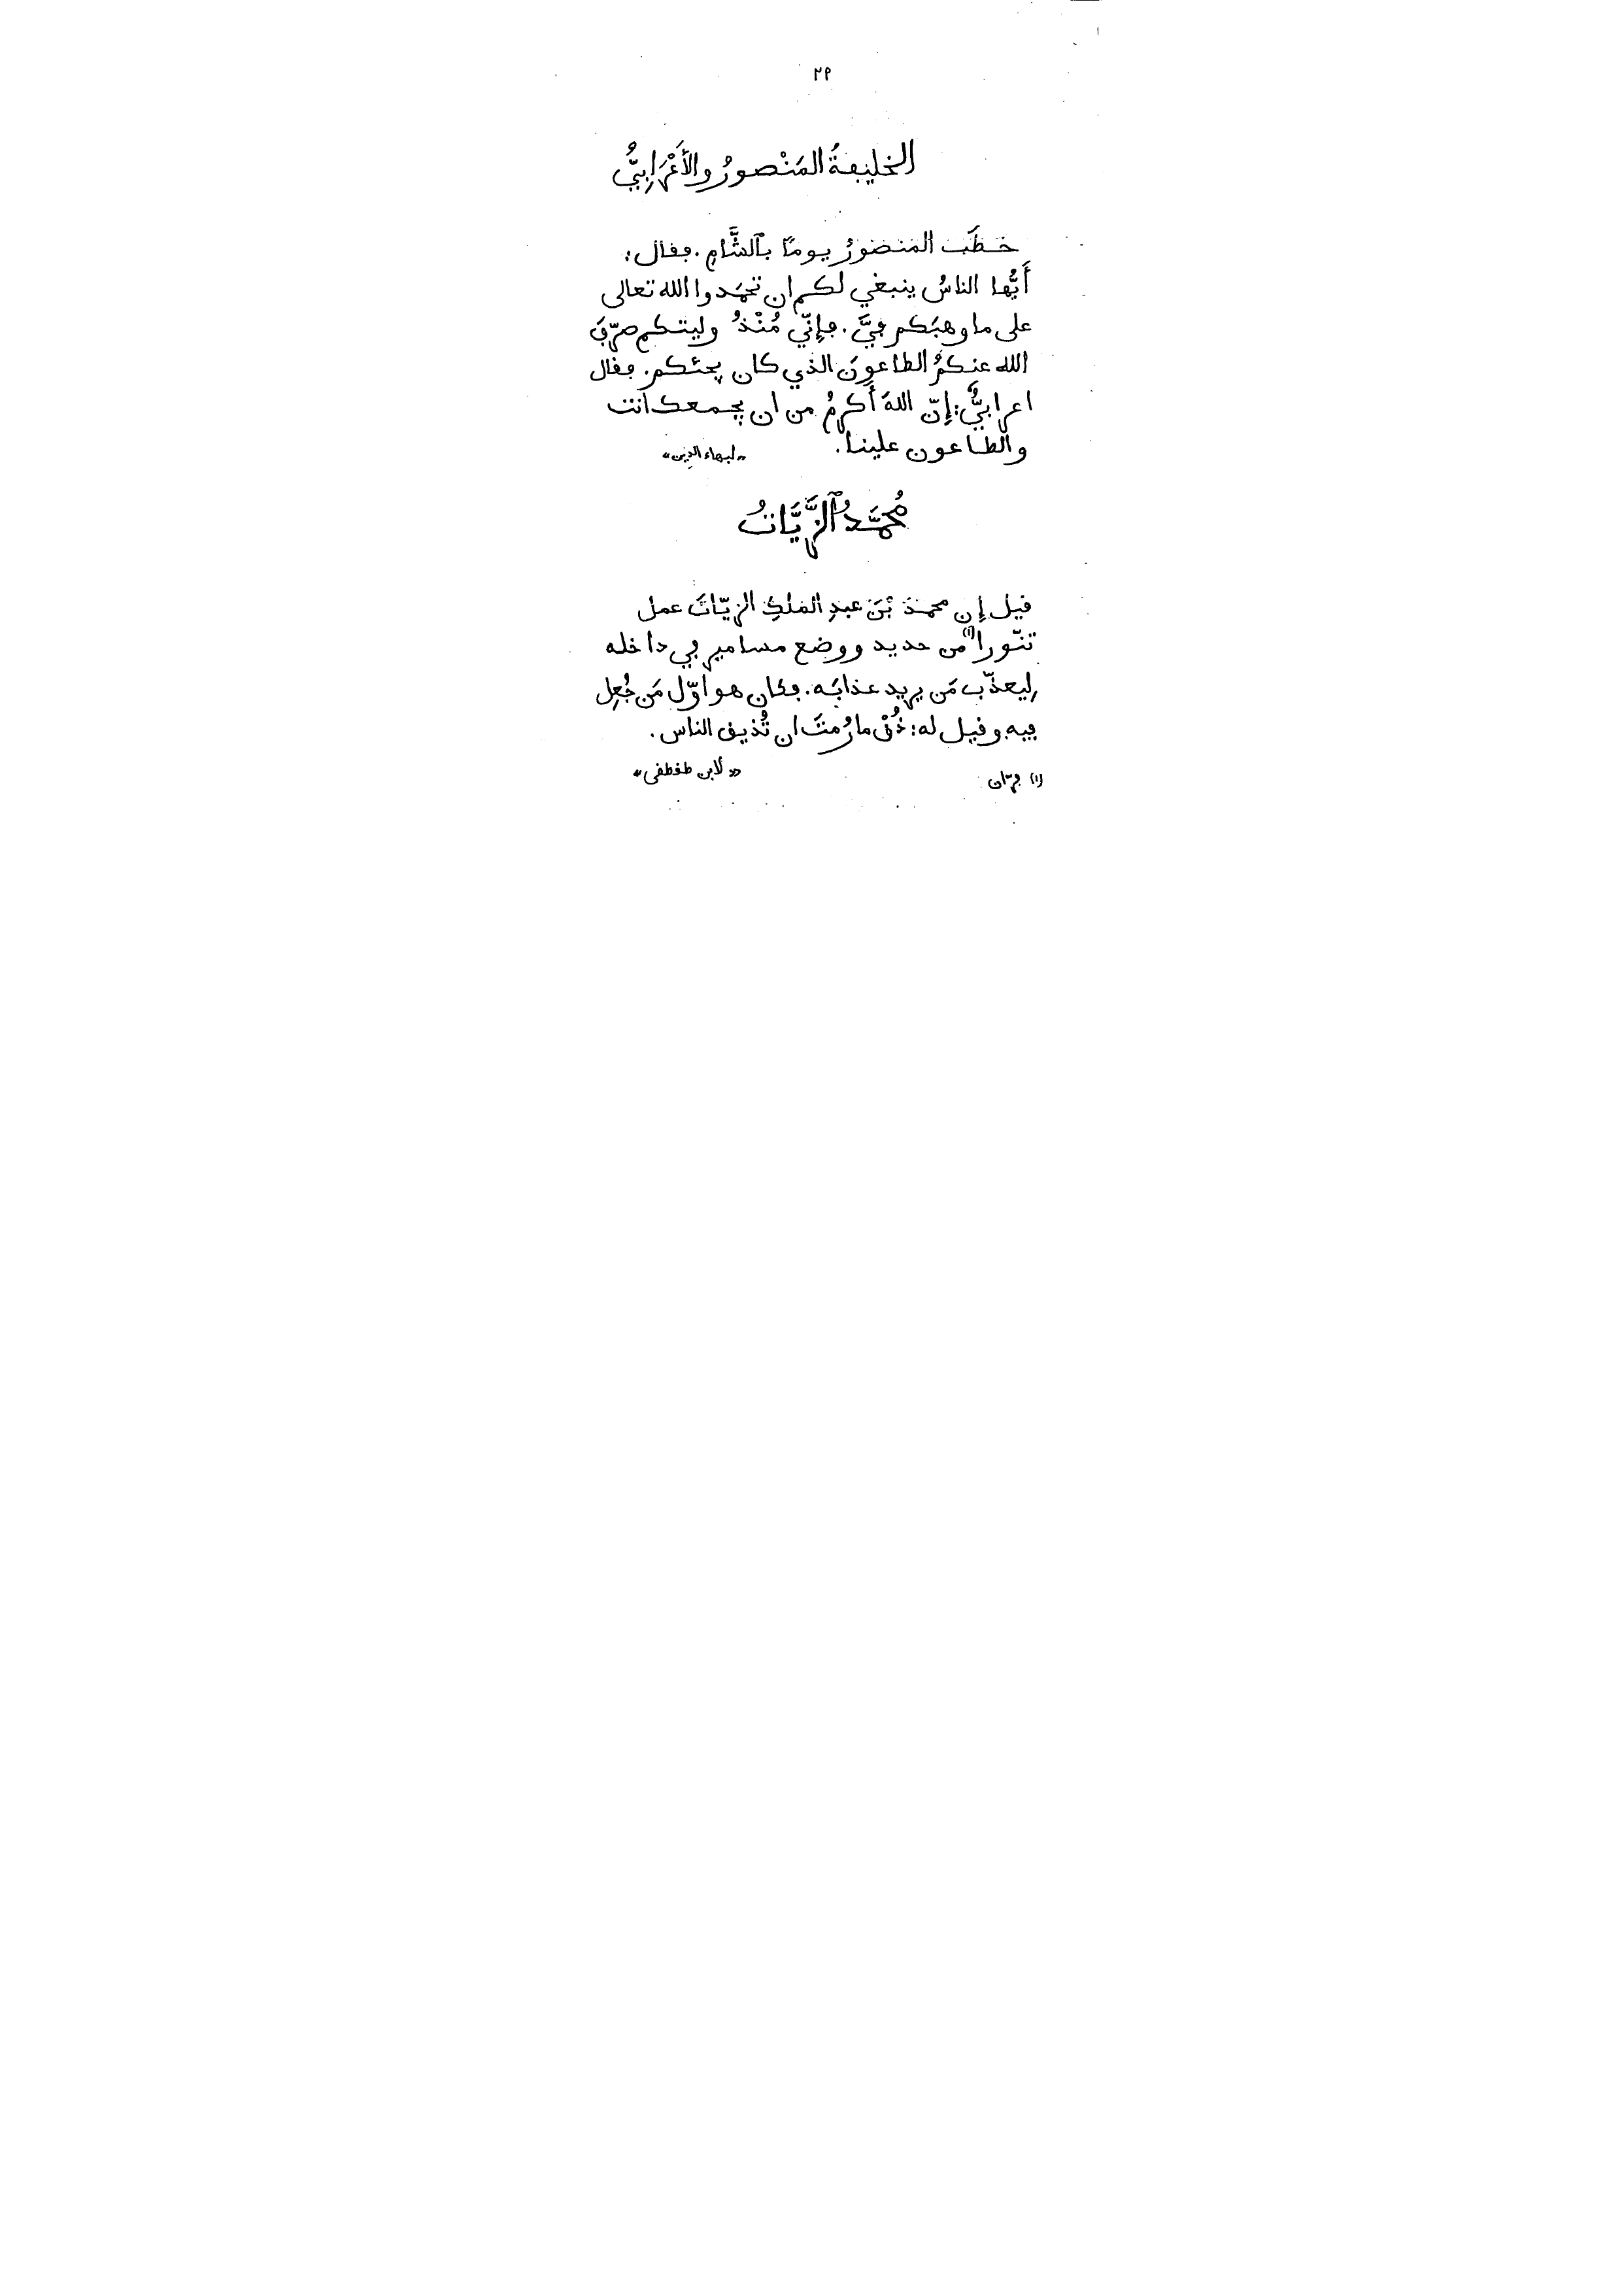 ٢٩
الخليفةُ المَنْصورُ والأَعْرَابِيُّ
خطَب المنصورُ يومًا بٱلشَّامِ . فقال :
أَيُّها الناسُ ينبغي لكم ان تحمَدوا الله تعالى
على ما وهبَكم فيَّ . فإِنّي مُنْذُ وليتكم صرّفَ
الله عنكمُ الطاعونَ الذي كان يجئكم . فقال
اعرابيٌّ : إِنّ اللهَ أَكرمُ من ان يجمعك انت
والطاعون علينا .
« لبهاء الدين »
مُحَمَّدُ ٱلزَّيَّاتُ
قيل إِن محمدَ بْنَ عبدِ الملكِ الزيّاتَ عمل
تنّورا (١) من حديد ووضع مسامير في داخله
لِيعذّب مَن يريد عذابَه . فكان هو اوّل مَن جُعِل
فيه وقيل له : ذُقْ ما رُمتَ ان تُذيق الناس .
« لابن طقطقى »
(١) فرّان